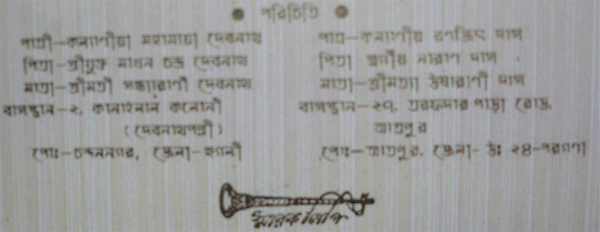 পরিচিতি
পাত্রী—কল্যাণীয়া মহামায়া দেবনাথ
পিতা—শ্রীযুক্ত মাধন চন্দ্র দেবনাথ
মাতা—শ্রীমতী সন্ধ্যারাণী দেবনাথ
বাসস্থান—২, কানাইলাল কলোনী
(দেবনাথপল্লী)
পোঃ—চন্দননগর, জেলা—হুগলী
পাত্র—কল্যাণীয় রণজিৎ দাস
পিতা স্বর্গীয় নারাণ দাস
মাতা—শ্রীমত্যা ঊষারাণী দাস
বাসস্থান—২৭, তরফদার পাড়া রোড,
আতপুর
পোঃ—আতপুর, জেলা- উঃ ২৪-পরগণা